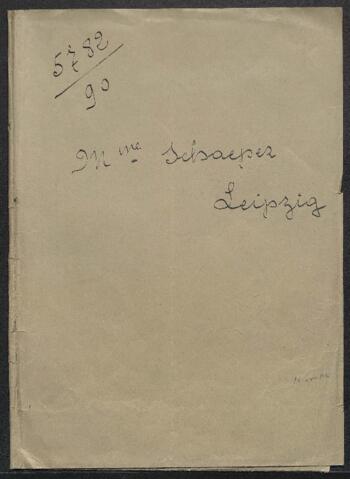 5782
90
Mme Schaeper
Leipzig